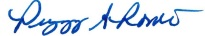 Peggy A Romo